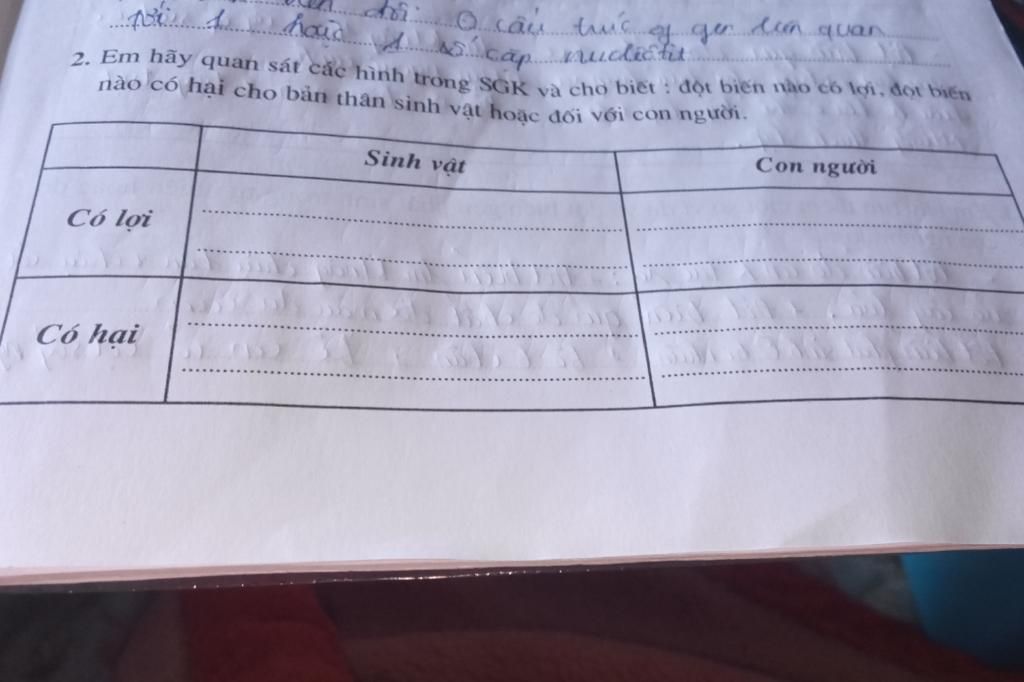 đổi. O cấu trúc of gen liên quan
tới 1 hoặc 1 số cặp nuclêôtit
2. Em hãy quan sát các hình trong SGK và cho biết : đột biến nào có lợi, đột biến
nào có hại cho bản thân sinh vật hoặc đối với con người.
Sinh vật
Con người
Có lợi
Có hại